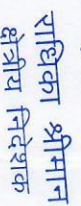 राधिका श्रीमान
क्षेत्रीय निदेशक